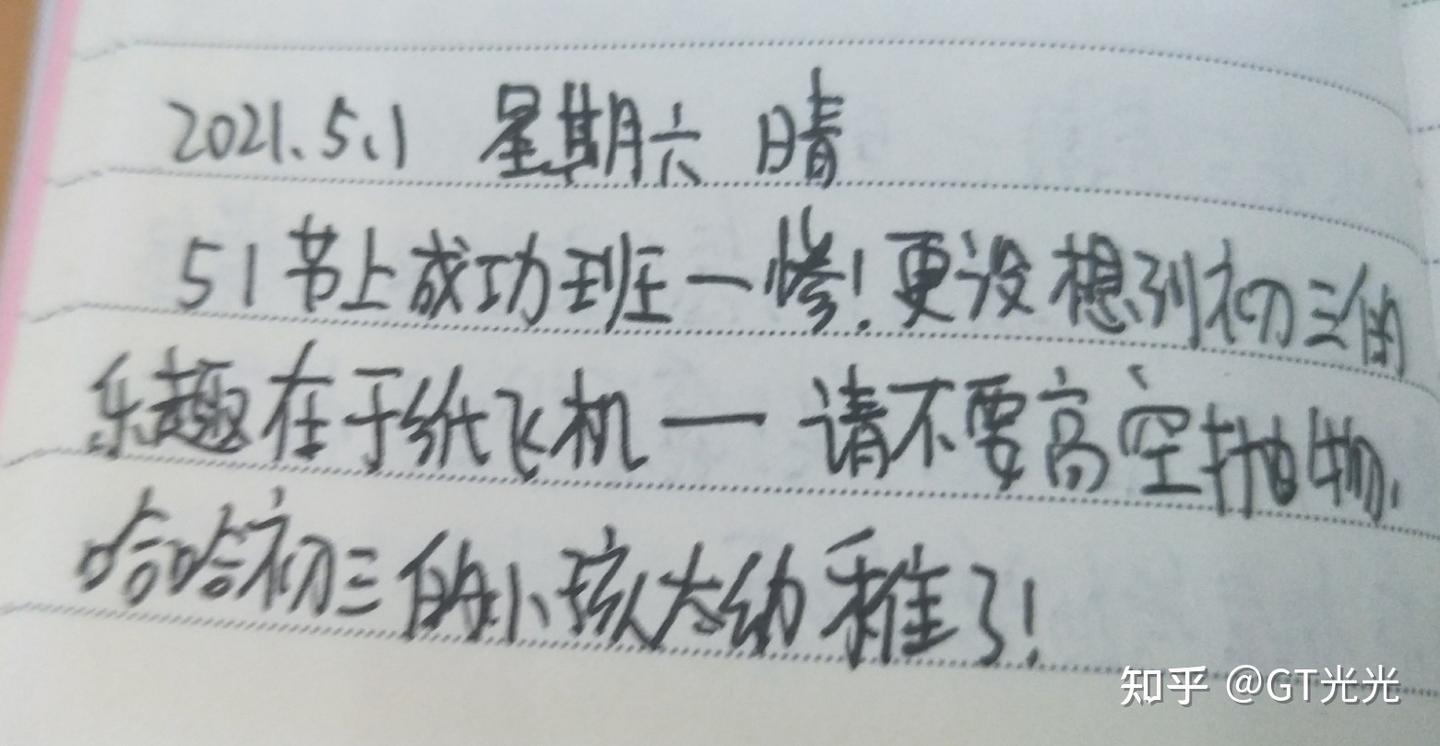 2021.5.1 星期六 晴
51节上成功班一惨!更没想到初三的
乐趣在于纸飞机一请不要高空抛物.
哈哈初三的小孩太幼稚了!
知乎 @GT光光